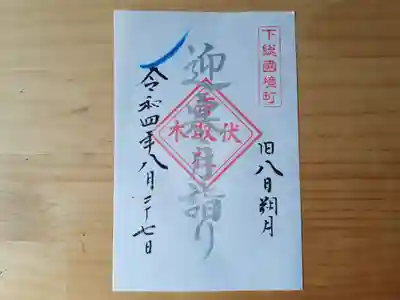 下総國境町
旧八日朔月
迎月詣り
伏取木
令和四年八月二十七日